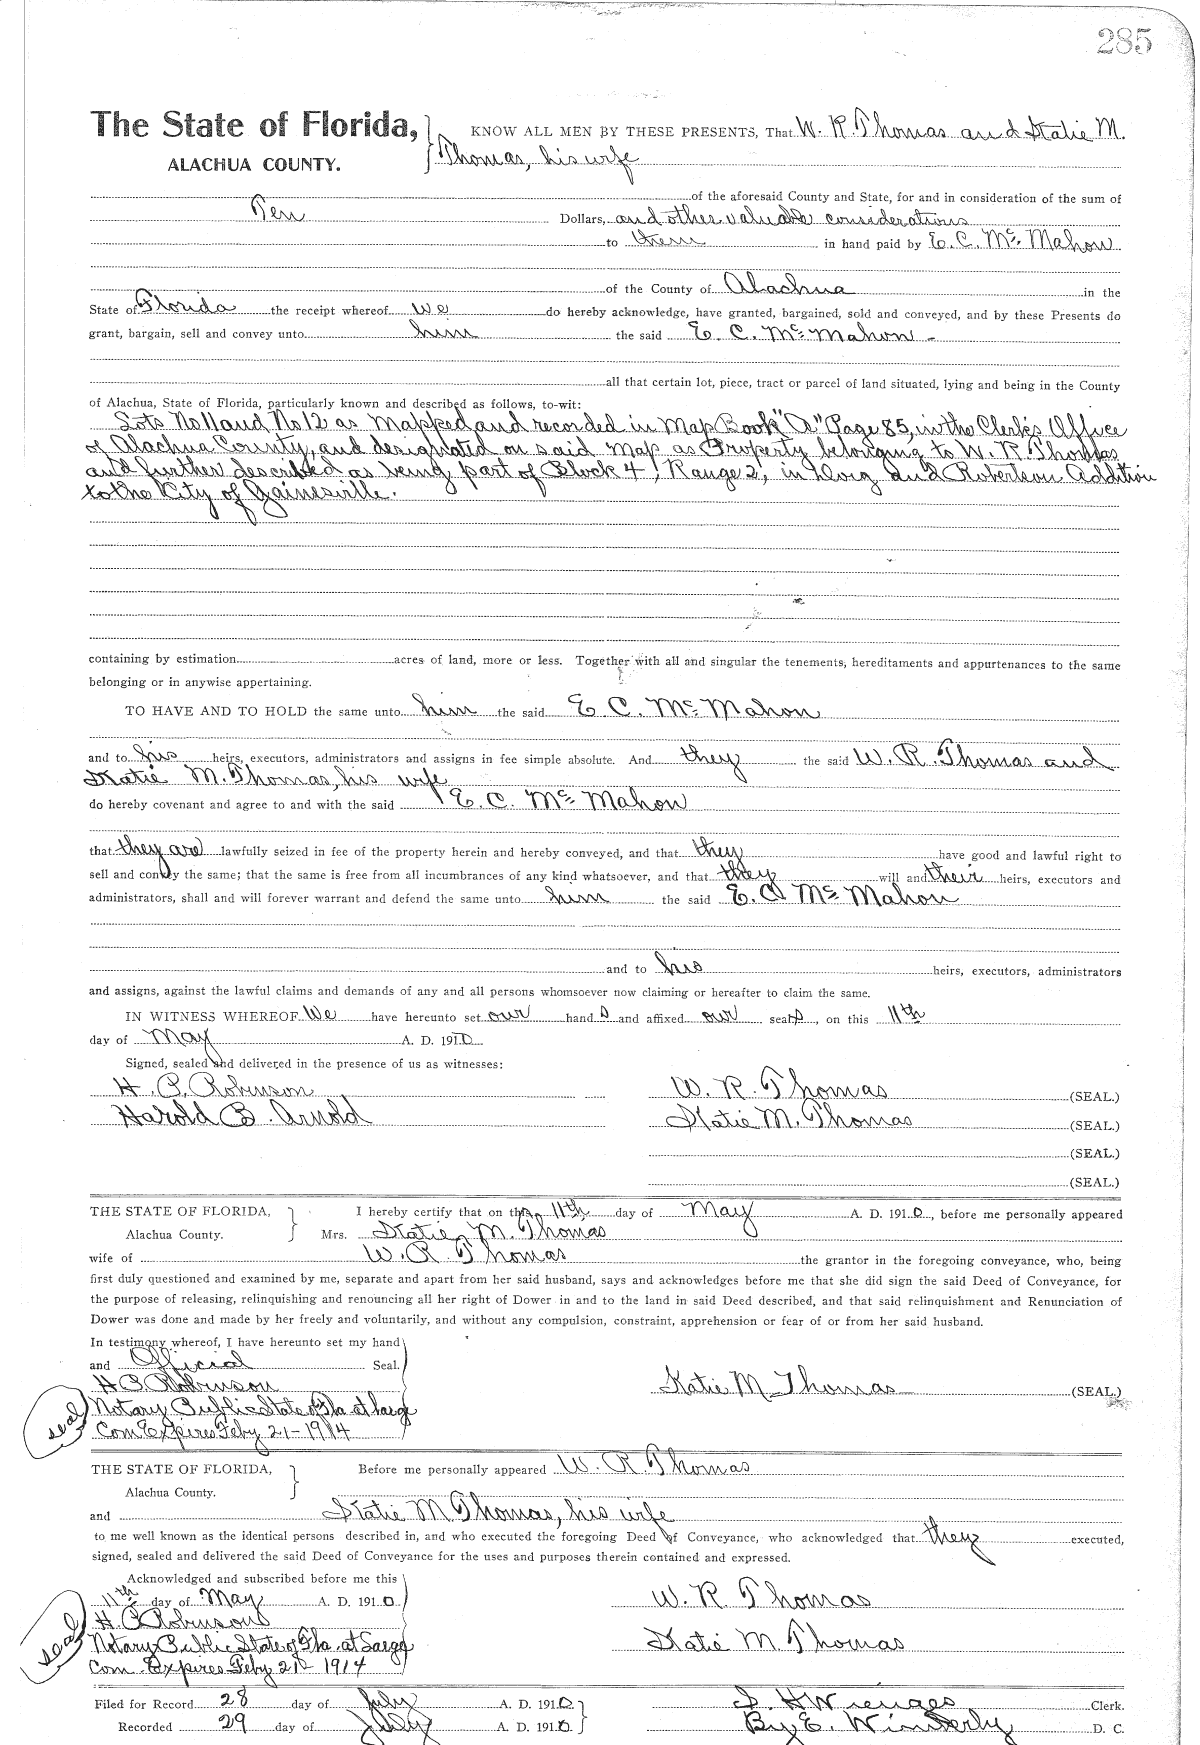 285
The State of Florida, } KNOW ALL MEN BY THESE PRESENTS, That W. R. Thomas and Katie M.
ALACHUA COUNTY. Thomas, his wife
of the aforesaid County and State, for and in consideration of the sum of
Ten Dollars, and other valuable considerations
to them in hand paid by E. C. McMahon
of the County of Alachua in the
State of Florida the receipt whereof we do hereby acknowledge, have granted, bargained, sold and conveyed, and by these Presents do
grant, bargain, sell and convey unto him the said E. C. McMahon
all that certain lot, piece, tract or parcel of land situated, lying and being in the County
of Alachua, State of Florida, particularly known and described as follows, to-wit:
Lots No 11 and No 12 as Mapped and recorded in Map Book "A" Page 85, in the Clerk's Office
of Alachua County, and designated on said Map as Property belonging to W. R. Thomas
and further described as being part of Block 4, Range 2, in Doig and Robertson Addition
to the City of Gainesville.
containing by estimation acres of land, more or less. Together with all and singular the tenements, hereditaments and appurtenances to the same
belonging or in anywise appertaining.
TO HAVE AND TO HOLD the same unto him the said E. C. McMahon
and to his heirs, executors, administrators and assigns in fee simple absolute. And they the said W. R. Thomas and
Katie M. Thomas, his wife
do hereby covenant and agree to and with the said E. C. McMahon
that they are lawfully seized in fee of the property herein and hereby conveyed, and that they have good and lawful right to
sell and convey the same; that the same is free from all incumbrances of any kind whatsoever, and that they will and their heirs, executors and
administrators, shall and will forever warrant and defend the same unto him the said E. C. McMahon
and to his heirs, executors, administrators
and assigns, against the lawful claims and demands of any and all persons whomsoever now claiming or hereafter to claim the same.
IN WITNESS WHEREOF We have hereunto set our hand s and affixed our seal s, on this 11th
day of May A. D. 1910
Signed, sealed and delivered in the presence of us as witnesses:
H. C. Robinson W. R. Thomas (SEAL.)
Harold B. Arnold Katie M. Thomas (SEAL.)
(SEAL.)
(SEAL.)
THE STATE OF FLORIDA, } I hereby certify that on this 11th day of May A. D. 1910, before me personally appeared
Alachua County. Mrs. Katie M. Thomas
wife of W. R. Thomas the grantor in the foregoing conveyance, who, being
first duly questioned and examined by me, separate and apart from her said husband, says and acknowledges before me that she did sign the said Deed of Conveyance, for
the purpose of releasing, relinquishing and renouncing all her right of Dower in and to the land in said Deed described, and that said relinquishment and Renunciation of
Dower was done and made by her freely and voluntarily, and without any compulsion, constraint, apprehension or fear of or from her said husband.
In testimony whereof, I have hereunto set my hand
and Official Seal.
H C Robinson Katie M Thomas (SEAL.)
seal Notary Public State of Fla. at Large
Com Expires Feby 21 - 1914
THE STATE OF FLORIDA, } Before me personally appeared W. R. Thomas
Alachua County.
and Katie M Thomas, his wife
to me well known as the identical persons described in, and who executed the foregoing Deed of Conveyance, who acknowledged that they executed,
signed, sealed and delivered the said Deed of Conveyance for the uses and purposes therein contained and expressed.
Acknowledged and subscribed before me this
11th day of May A. D. 1910 W. R Thomas
H. C Robinson
seal Notary Public State of Fla. at Large Katie M Thomas
Com. Expires Feby 21st 1914
Filed for Record 28 day of July A. D. 1910 S. H Wienges Clerk.
Recorded 29 day of July A. D. 1910 By E. Wimberly D. C.